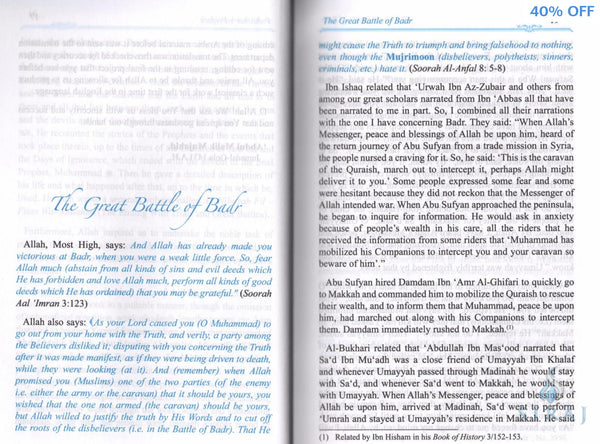 The Great Battle of Badr
Allah, Most High, says: And Allah has already made you
victorious at Badr, when you were a weak little force. So, fear
Allah much (abstain from all kinds of sins and evil deeds which
He has forbidden and love Allah much, perform all kinds of good
deeds which He has ordained) that you may be grateful." (Soorah
Aal 'Imran 3:123)
Allah also says: (As your Lord caused you (O Muhammad) to
go out from your home with the Truth, and verily, a party among
the Believers disliked it; disputing with you concerning the Truth
after it was made manifest, as if they were being driven to death,
while they were looking (at it). And (remember) when Allah
promised you (Muslims) one of the two parties (of the enemy
i.e. either the army or the caravan) that it should be yours, you
wished that the one not armed (the caravan) should be yours,
but Allah willed to justify the truth by His Words and to cut off
the roots of the disbelievers (i.e. in the Battle of Badr). That He
The Great Battle of Badr
40% OFF
might cause the Truth to triumph and bring falsehood to nothing,
even though the Mujrimoon (disbelievers, polytheists, sinners,
criminals, etc.) hate it. (Soorah Al-Anfal 8: 5-8)
Ibn Ishaq related that 'Urwah Ibn Az-Zubair and others from
among our great scholars narrated from Ibn 'Abbas all that have
been narrated to me in part. So, I combined all their narrations
with the one I have concerning Badr. They said: "When Allah's
Messenger, peace and blessings of Allah be upon him, heard of
the return journey of Abu Sufyan from a trade mission in Syria,
the people nursed a craving for it. So, he said: 'This is the caravan
of the Quraish, march out to intercept it, perhaps Allah might
deliver it to you.' Some people expressed some fear and some
were hesitant because they did not reckon that the Messenger of
Allah intended war. When Abu Sufyan approached the peninsula,
he began to inquire for information. He would ask in anxiety
because of people's wealth in his care, all the riders that he
received the information from some riders that 'Muhammad has
mobilized his Companions to intercept you and your caravan so
beware of him'."
Abu Sufyan hired Damdam Ibn 'Amr Al-Ghifari to quickly go
to Makkah and commanded him to mobilize the Quraish to rescue
their wealth, and to inform them that Muhammad, peace be upon
him, had marched out along with his Companions to intercept
them. Damdam immediately rushed to Makkah.(1)
Al-Bukhari related that 'Abdullah Ibn Mas'ood narrated that
Sa'd Ibn Mu'adh was a close friend of Umayyah Ibn Khalaf
and whenever Umayyah passed through Madinah he would stay
with Sa'd, and whenever Sa'd went to Makkah, he would stay
with Umayyah. When Allah's Messenger, peace and blessings of
Allah be upon him, arrived at Madinah, Sa'd went to perform
'Umrah and stayed at Umayyah's residence in Makkah. He said
(1) Related by Ibn Hisham in his Book of History 3/152-153.